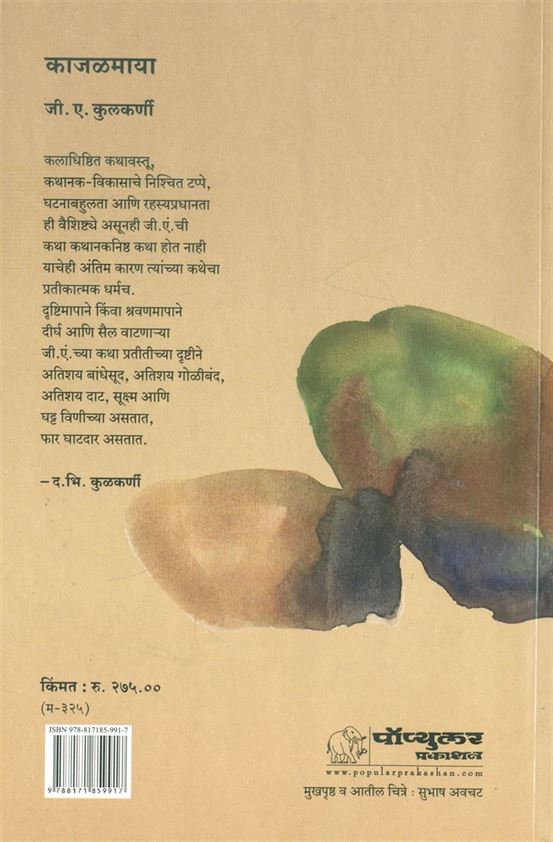 काजळमाया
जी. ए. कुलकर्णी
कलाधिष्ठित कथावस्तू,
कथानक-विकासाचे निश्चित टप्पे,
घटनाबहुलता आणि रहस्यप्रधानता
ही वैशिष्ट्ये असूनही जी.एं.ची
कथा कथानकनिष्ठ कथा होत नाही
याचेही अंतिम कारण त्यांच्या कथेचा
प्रतीकात्मक धर्मच.
दृष्टिमापाने किंवा श्रवणमापाने
दीर्घ आणि सैल वाटणाऱ्या
जी.एं.च्या कथा प्रतीतीच्या दृष्टीने
अतिशय बांधेसूद, अतिशय गोळीबंद,
अतिशय दाट, सूक्ष्म आणि
घट्ट विणीच्या असतात,
फार घाटदार असतात.
–द.भि. कुळकर्णी
किंमत : रु. २७५.००
(म-३२५)
ISBN 978-817185-991-7
9788171859917
पॉप्युलर
प्रकाशन
www.popularprakashan.com
मुखपृष्ठ व आतील चित्रे : सुभाष अवचट